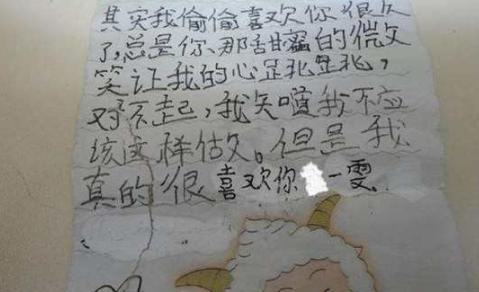 其实我偷偷喜欢你很久
了,总是你、那甜蜜的微
笑让我的心
对不起,我知道我不应
该这样做。但是我
真的很喜欢你 一雯